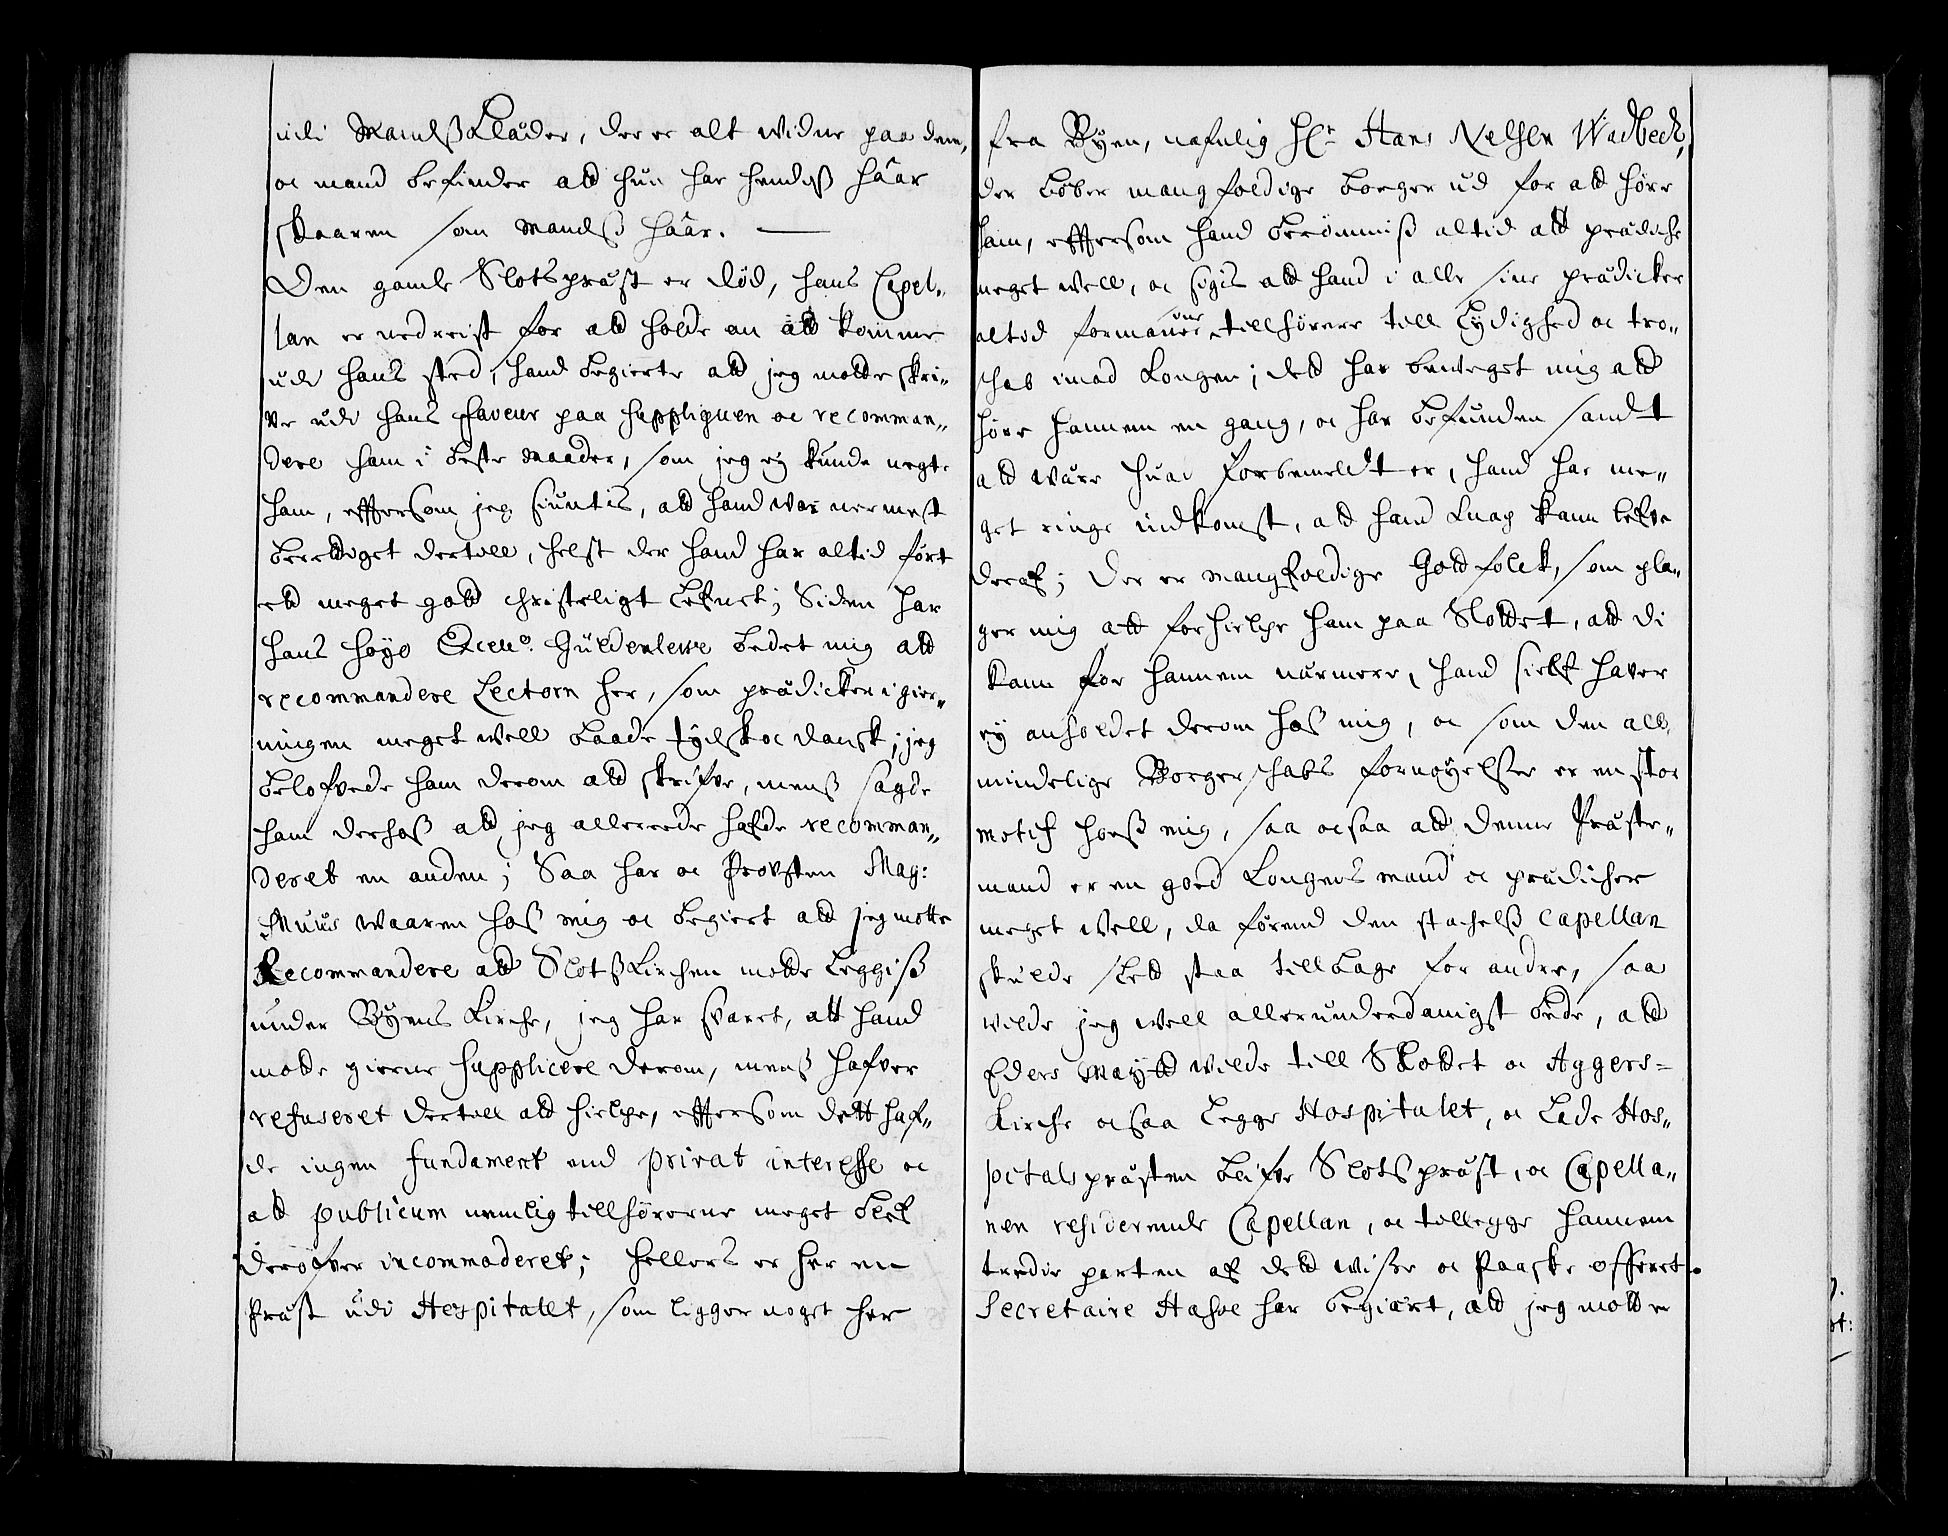 udi Mandß Klæder, der er alt vidne paa dem,
oc mand befinder att hun har hendeß haar
skaaren som Mandß haar. —
Den gamle Slotspræst er død, hans Capel„
lan er nedreist for att holde an att komme
udi hans sted, hand begierte att jeg motte skri„
ve udi hans faveur paa suppliquen oc recomman„
dere ham i beste maader, som jeg ej kunde negte
ham, effersom jeg siuntis, att hand var nermest
berettiget dertill, helst der hand har altid ført
ett meget gott christeligt Lefnet; Siden har
hans høye Excell: Güldenlewe bedet mig att
recommandere Lectorn her, som prædicker i gier„
ningen meget well baade tydsk oc dansk; jeg
belofvede ham derom att skrifve, menß sagde
ham derhoß att jeg allereede hafde recomman„
deret en anden; Saa har oc Provsten Mag:
Muus waaren hoß mig oc begiert att jeg motte
Recommandere att Slotßkirchen motte leggiß
under Byens Kirche, jeg har svaret, att hand
motte gierne supplicere derom, menß hafver
refuseret dertill att hielpe, effersom dett haf„
de ingen fundament end privat interesse oc
att publicum nemlig tillhørerne meget blef
derofver incommoderet; hellers er her en
Præst udi Hospitalet, som ligger noget her
fra Byen, nafnlig Hr Hans Nelsen Wadbeck,
der løber mangfoldige borger ud for att høre
ham, effersom hand berømmiß altid att prædiche
meget well, oc sigis att hand i alle sine prædicker
altid formaner sine tillhørere till Lydighed oc tro„
schab imod Kongen; dett har beveget mig att
høre hannem en gang, oc har befunden sandt
att være huad forbemeldt er, hand har me„
get ringe indkomst, att hand knap kann lefve
deraf; der er mangfoldige Gott folck, som pla„
ger mig att forhielpe ham paa Slottet, att di
kann før hannem nærmere, hand sielf haver
ej anholdet derom hoß mig, oc som den all„
mindelige Borgerschabs fornøyelsse er en stor
motif hoeß mig, saa ocsaa att denne Præste„
mand er en goed Kongens mand oc prædicher
meget well, da førend den stachelß Capellan
skulde slett staa tillbage for andre, saa
vilde jeg well allerunderdanigst bede, att
Eders Maytt vilde till Slottet oc Aggers=
Kirche ocsaa legge Hospitalet, oc lade Hos„
pitals præsten blifve Slotspræst, oc Capella„
nen residerende Capellan, oc tillegge hannem
tredie parten af dett visse oc Paaske offeret.
Secretaire Hasve har begiært, att jeg motte